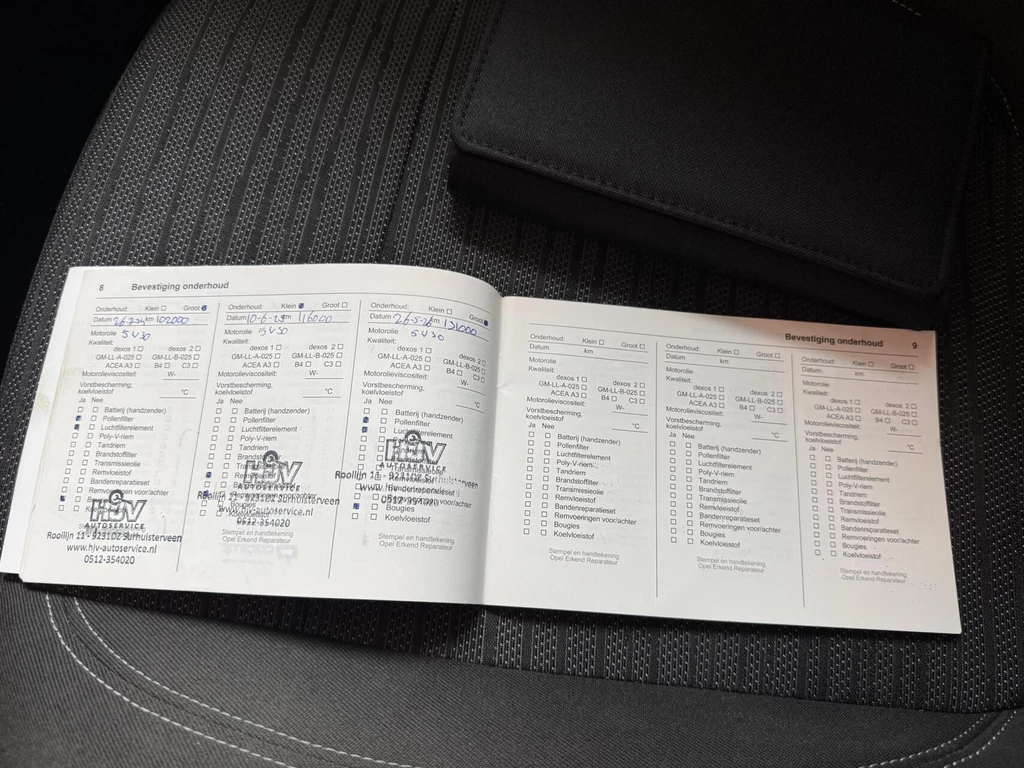 8 Bevestiging onderhoud
Onderhoud: Klein Groot
Datum km 102000
Motorolie 5W30
Kwaliteit:
dexos 1 dexos 2
GM-LL-A-025 GM-LL-B-025
ACEA A3 B4 C3
Motorolieviscositeit: W-
Vorstbescherming,
koelvloeistof °C
Ja Nee
Batterij (handzender)
Pollenfilter
Luchtfilterelement
Poly-V-riem
Tandriem
Brandstoffilter
Transmissieolie
Remvloeistof
Bandenreparatieset
Remvoeringen voor/achter
HJV
AUTOSERVICE
Roolijn 11 - 9231DZ Surhuisterveen
www.hjv-autoservice.nl
0512-354020
Onderhoud: Klein Groot
Datum 10-6-25 km 116000
Motorolie 5W30
Kwaliteit:
dexos 1 dexos 2
GM-LL-A-025 GM-LL-B-025
ACEA A3 B4 C3
Motorolieviscositeit: W-
Vorstbescherming,
koelvloeistof °C
Ja Nee
Batterij (handzender)
Pollenfilter
Luchtfilterelement
Poly-V-riem
Tandriem
HJV
AUTOSERVICE
Roolijn 11 - 9231DZ Surhuisterveen
www.hjv-autoservice.nl
0512-354020
Stempel en handtekening
Opel Erkend Reparateur
Onderhoud: Klein Groot
Datum 26-5-26 km 131000
Motorolie 5W30
Kwaliteit:
dexos 1 dexos 2
GM-LL-A-025 GM-LL-B-025
ACEA A3 B4 C3
Motorolieviscositeit: W-
Vorstbescherming,
koelvloeistof °C
Ja Nee
Batterij (handzender)
Pollenfilter
Luchtfilterelement
HJV
AUTOSERVICE
Roolijn 11 - 9231DZ Surhuisterveen
www.hjv-autoservice.nl
0512-354020
Bougies
Koelvloeistof
Stempel en handtekening
Opel Erkend Reparateur
Bevestiging onderhoud 9
Onderhoud: Klein Groot
Datum km
Motorolie
Kwaliteit:
dexos 1 dexos 2
GM-LL-A-025 GM-LL-B-025
ACEA A3 B4 C3
Motorolieviscositeit: W-
Vorstbescherming,
koelvloeistof °C
Ja Nee
Batterij (handzender)
Pollenfilter
Luchtfilterelement
Poly-V-riem
Tandriem
Brandstoffilter
Transmissieolie
Remvloeistof
Bandenreparatieset
Remvoeringen voor/achter
Bougies
Koelvloeistof
Stempel en handtekening
Opel Erkend Reparateur
Onderhoud: Klein Groot
Datum km
Motorolie
Kwaliteit:
dexos 1 dexos 2
GM-LL-A-025 GM-LL-B-025
ACEA A3 B4 C3
Motorolieviscositeit: W-
Vorstbescherming,
koelvloeistof °C
Ja Nee
Batterij (handzender)
Pollenfilter
Luchtfilterelement
Poly-V-riem
Tandriem
Brandstoffilter
Transmissieolie
Remvloeistof
Bandenreparatieset
Remvoeringen voor/achter
Bougies
Koelvloeistof
Stempel en handtekening
Opel Erkend Reparateur
Onderhoud: Klein Groot
Datum km
Motorolie
Kwaliteit:
dexos 1 dexos 2
GM-LL-A-025 GM-LL-B-025
ACEA A3 B4 C3
Motorolieviscositeit: W-
Vorstbescherming,
koelvloeistof °C
Ja Nee
Batterij (handzender)
Pollenfilter
Luchtfilterelement
Poly-V-riem
Tandriem
Brandstoffilter
Transmissieolie
Remvloeistof
Bandenreparatieset
Remvoeringen voor/achter
Bougies
Koelvloeistof
Stempel en handtekening
Opel Erkend Reparateur